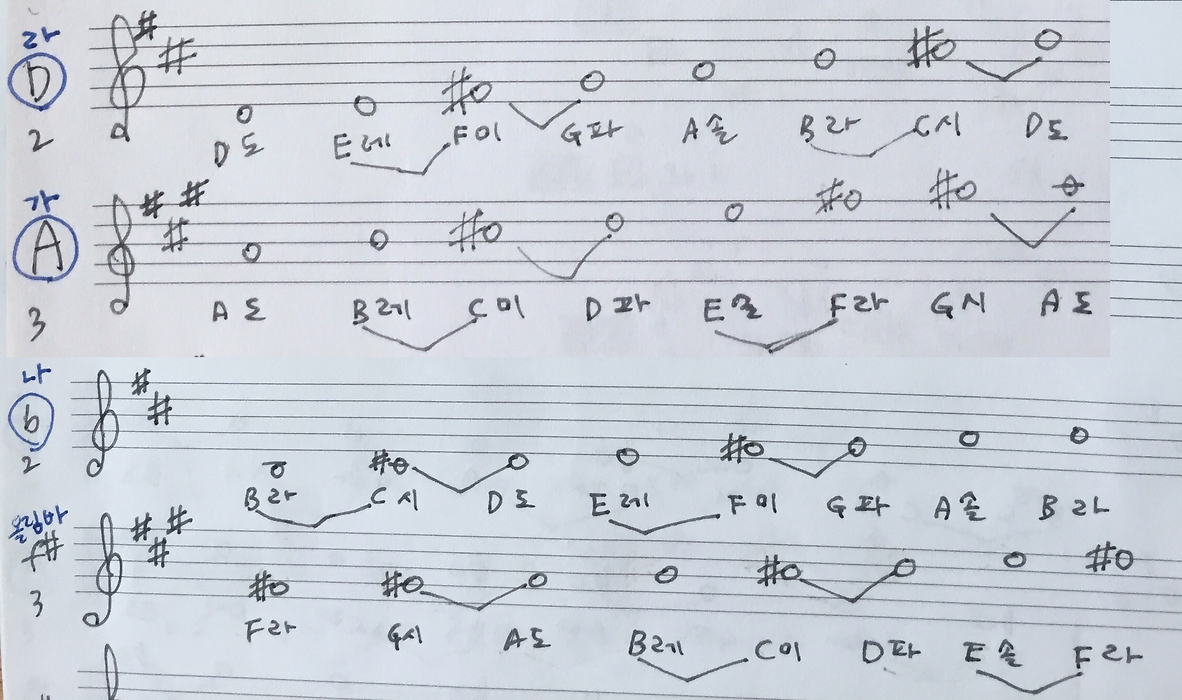 라
D
2
D도 E레 F미 G파 A솔 B라 C시 D도
가
A
3
A도 B레 C미 D파 E솔 F라 G시 A도
나
b
2
B라 C시 D도 E레 F미 G파 A솔 B라
올림바
f#
3
F라 G시 A도 B레 C미 D파 E솔 F라